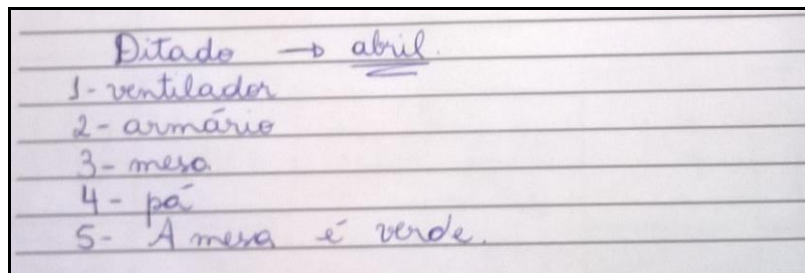 Ditado → abril.
1- ventilador
2- armário
3- mesa
4- pá
5- A mesa é verde.